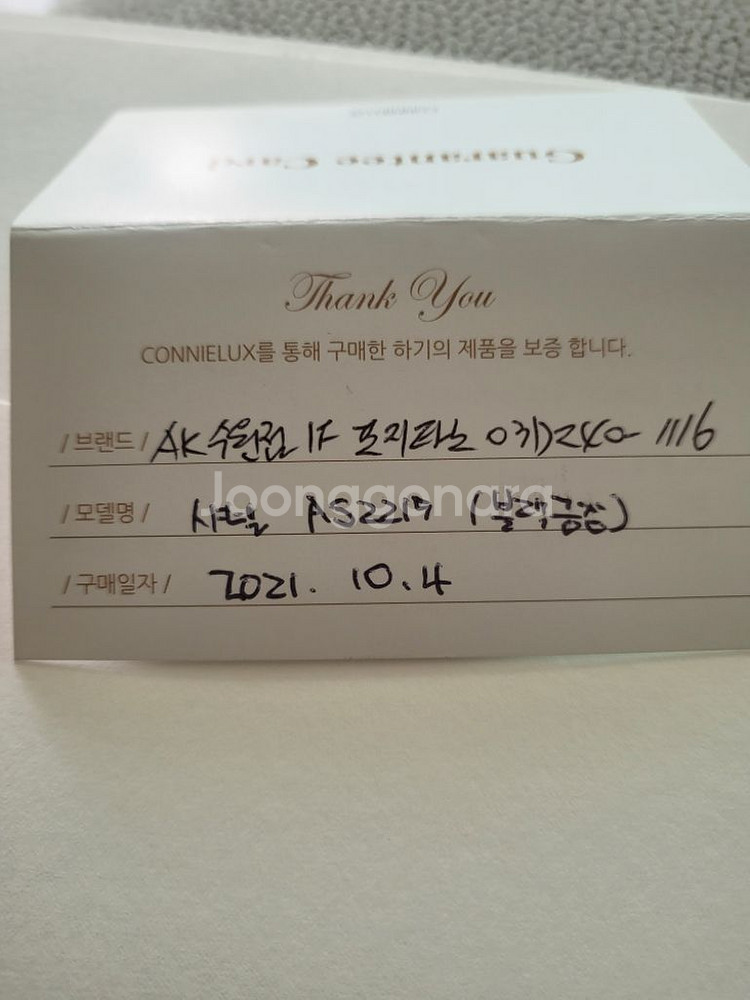 Guarantee Card
Thank You
CONNIELUX를 통해 구매한 하기의 제품을 보증 합니다.
/ 브랜드 / AK 수원점 1F 프리파노 031)240-1116
/ 모델명 / 샤넬 AS2219 (블랙,금장)
/ 구매일자 / 2021. 10. 4
Joonggonara